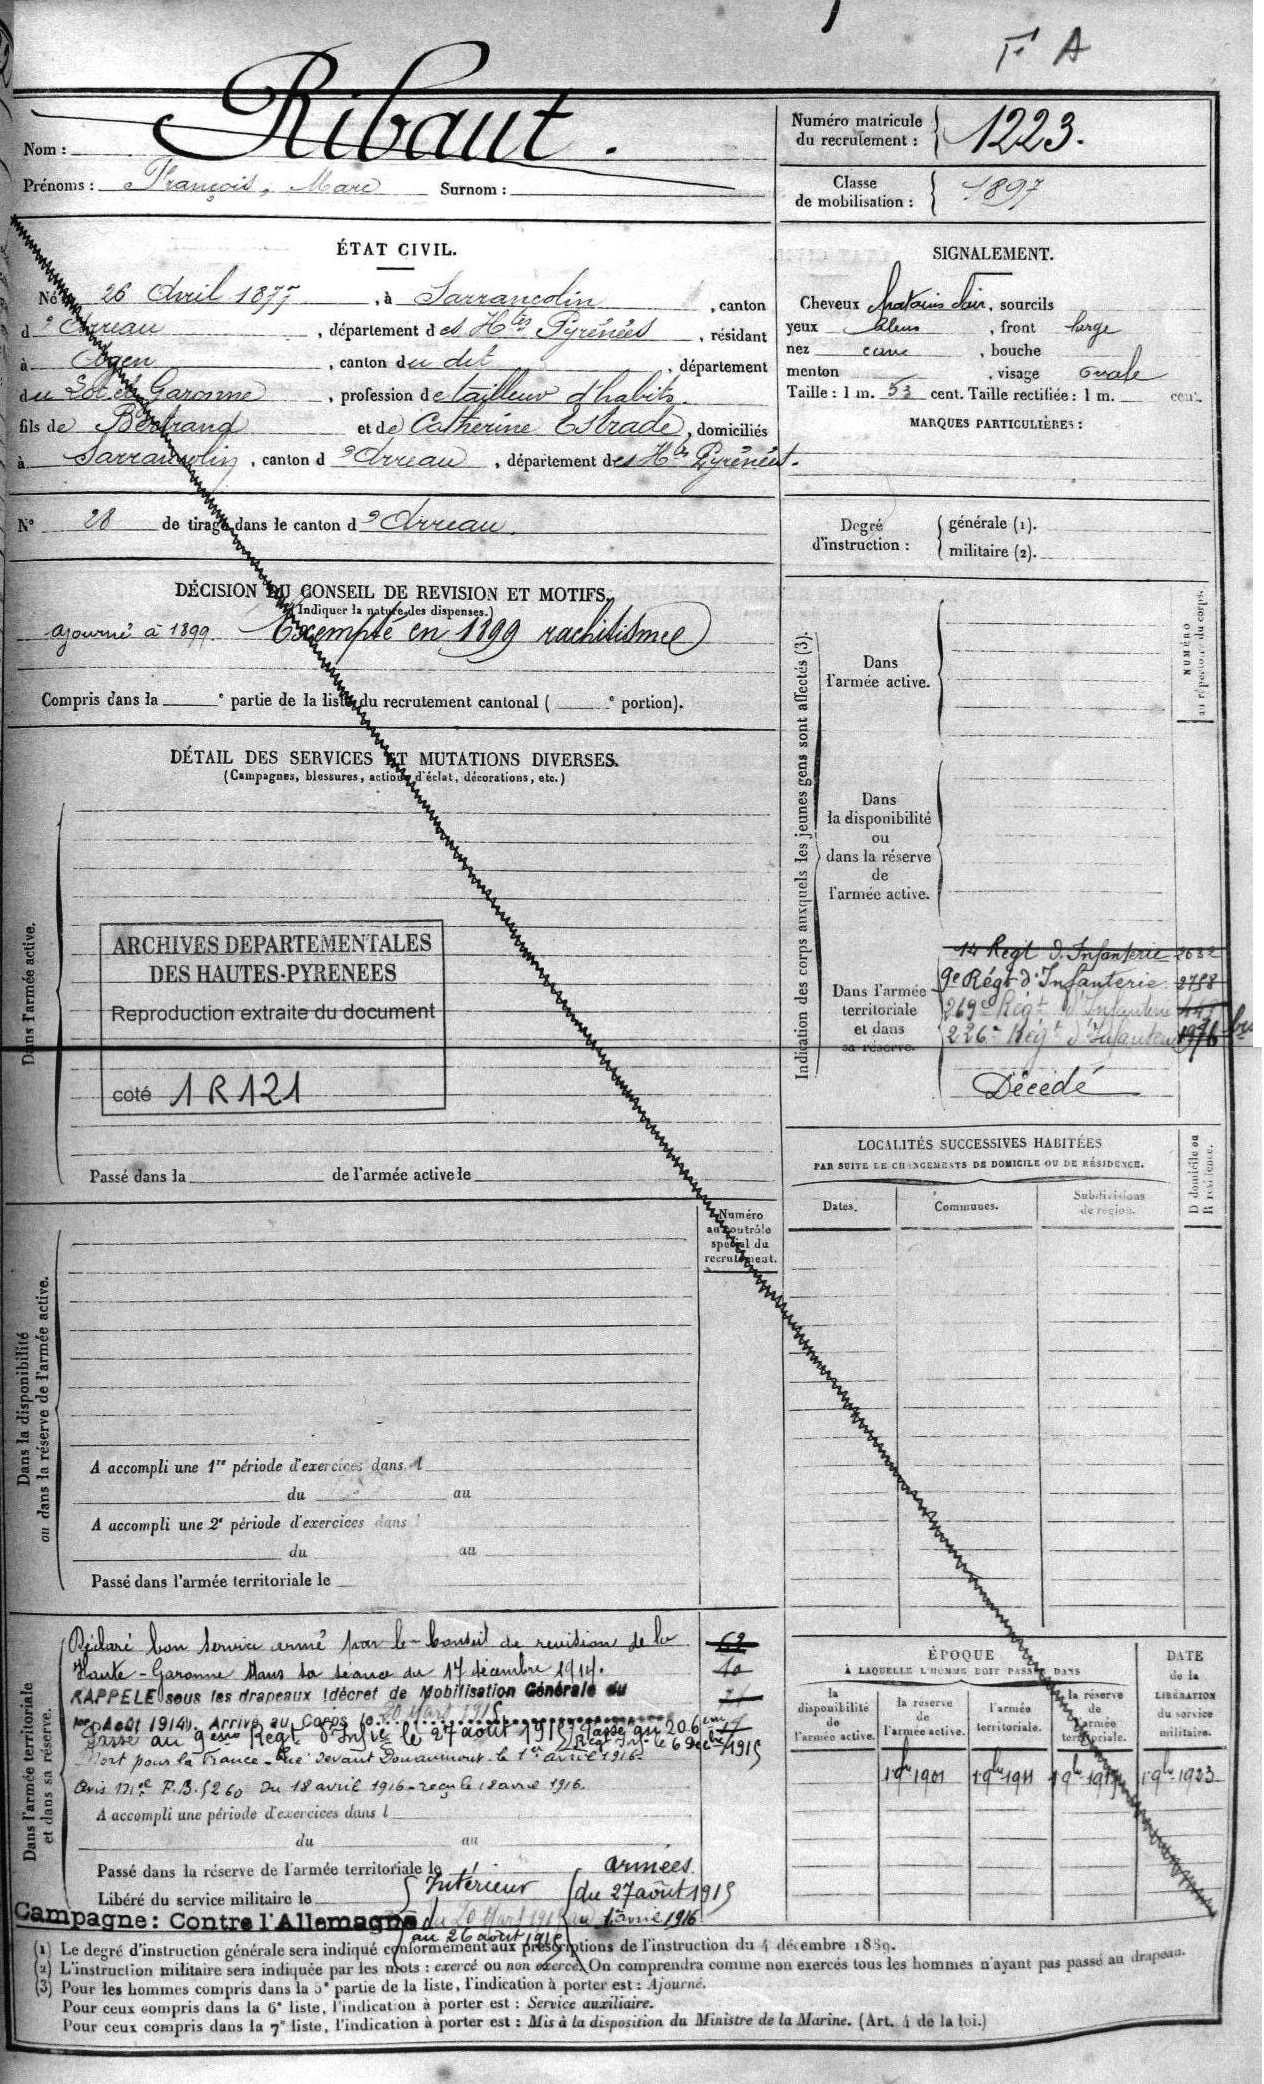 F A
Nom : Ribaut.
Prénoms : François, Marc Surnom :
Numéro matricule
du recrutement : 1223.
Classe
de mobilisation : 1897
ÉTAT CIVIL.
Né 26 Avril 1877, à Sarrancolin, canton
d'Arreau, département des Htes Pyrénées, résidant
à Agen, canton du dit, département
du Lot et Garonne, profession de tailleur d'habits.
fils de Bertrand et de Catherine Estrade, domiciliés
à Sarrancolin, canton d'Arreau, département des Htes Pyrénées.
N° 28 de tirage dans le canton d'Arreau.
SIGNALEMENT.
Cheveux chatain clair, sourcils
yeux bleus, front large
nez cave, bouche
menton , visage ovale
Taille : 1 m. 53 cent. Taille rectifiée : 1 m. cent.
MARQUES PARTICULIÈRES :
Degré
d'instruction :
générale (1).
militaire (2).
DÉCISION DU CONSEIL DE REVISION ET MOTIFS.
(Indiquer la nature des dispenses.)
ajourné à 1899. Exempté en 1899 rachitisme
Compris dans la e partie de la liste du recrutement cantonal ( e portion).
DÉTAIL DES SERVICES ET MUTATIONS DIVERSES.
(Campagnes, blessures, actions d'éclat, décorations, etc.)
Dans l'armée active.
ARCHIVES DEPARTEMENTALES
DES HAUTES-PYRENEES
Reproduction extraite du document
coté 1 R 121
Passé dans la de l'armée active le
Indication des corps auxquels les jeunes gens sont affectés (3).
NUMÉRO
au répertoire du corps.
Dans
l'armée active.
Dans
la disponibilité
ou
dans la réserve
de
l'armée active.
Dans l'armée
territoriale
et dans
sa réserve.
14 Regt d'Infanterie 2632
9e Régt d'Infanterie 2758
269e Régt d'Infanterie 449
226e Régt d'Infanterie 1976 bis
Décédé
LOCALITÉS SUCCESSIVES HABITÉES
PAR SUITE DE CHANGEMENTS DE DOMICILE OU DE RÉSIDENCE.
Dates. Communes. Subdivisions
de région.
D domicile ou
R résidence.
Numéro
au contrôle
spécial du
recrutement.
Dans la disponibilité
ou dans la réserve de l'armée active.
A accompli une 1re période d'exercices dans l
du au
A accompli une 2e période d'exercices dans l
du au
Passé dans l'armée territoriale le
Dans l'armée territoriale
et dans sa réserve.
Déclaré bon service armé par le Conseil de revision de la
Haute-Garonne dans sa séance du 17 décembre 1914.
RAPPELÉ sous les drapeaux (décret de Mobilisation Générale du
1er Août 1914). Arrivé au Corps le 20 Mars 1915
Passé au 9eme Regt d'Infie le 27 août 1915 Passé au 206eme
Régt Inf. le 6 Décbre 1915
Mort pour la France - tué devant Douaumont le 1er avril 1916
Avis Mel F.B. 5260 du 18 avril 1916 - reçu le 18 avril 1916.
A accompli une période d'exercices dans l
du au
Passé dans la réserve de l'armée territoriale le
Libéré du service militaire le
Campagne : Contre l'Allemagne
Intérieur
du 20 Mars 1915
au 26 août 1915
armées
du 27 août 1915
au 1 avril 1916
ÉPOQUE
À LAQUELLE L'HOMME DOIT PASSER DANS
la
disponibilité
de
l'armée active.
la réserve
de
l'armée active.
l'armée
territoriale.
la réserve
de
l'armée
territoriale.
DATE
de la
LIBÉRATION
du service
militaire.
1 9bre 1901 1 9bre 1911 1 9bre 1917 1 9bre 1923
(1) Le degré d'instruction générale sera indiqué conformément aux prescriptions de l'instruction du 4 décembre 1889.
(2) L'instruction militaire sera indiquée par les mots : exercé ou non exercé. On comprendra comme non exercés tous les hommes n'ayant pas passé au drapeau.
(3) Pour les hommes compris dans la 5e partie de la liste, l'indication à porter est : Ajourné.
Pour ceux compris dans la 6e liste, l'indication à porter est : Service auxiliaire.
Pour ceux compris dans la 7e liste, l'indication à porter est : Mis à la disposition du Ministre de la Marine. (Art. 4 de la loi.)